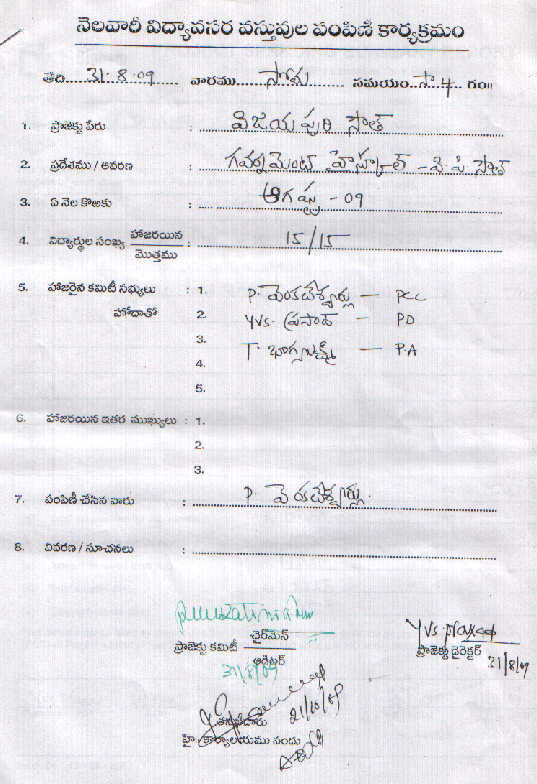 నెలవారీ విద్యావసర వస్తువుల పంపిణి కార్యక్రమం
తేది 31-8-09 వారము సోమ సమయం సా 4 గం॥
1. ప్రాజెక్టు పేరు : విజయ పురి సౌత్
2. ప్రదేశము / ఆవరణ : గవర్నమెంట్ హైస్కూల్ - వి.పి. సౌత్
3. ఏ నెల కొఱకు : ఆగష్టు - 09
4. విద్యార్థుల సంఖ్య హాజరయిన / మొత్తము : 15/15
5. హాజరైన కమిటీ సభ్యులు : 1. P. వెంకటేశ్వర్లు - PCC
హోదాతో 2. YVS. ప్రసాద్ - PD
3. T. భాగ్యలక్ష్మి - P.A
4.
5.
6. హాజరయిన ఇతర ముఖ్యులు : 1.
2.
3.
7. పంపిణీ చేసిన వారు : P. వెంకటేశ్వర్లు.
8. వివరణ / సూచనలు :
చైర్‌మెన్
ప్రాజెక్టు కమిటీ
ఆడిటర్
31/8/09
YVS. Prasad
ప్రాజెక్టు డైరెక్టర్
31/8/09
21/10/09
కార్యాలయము నందు